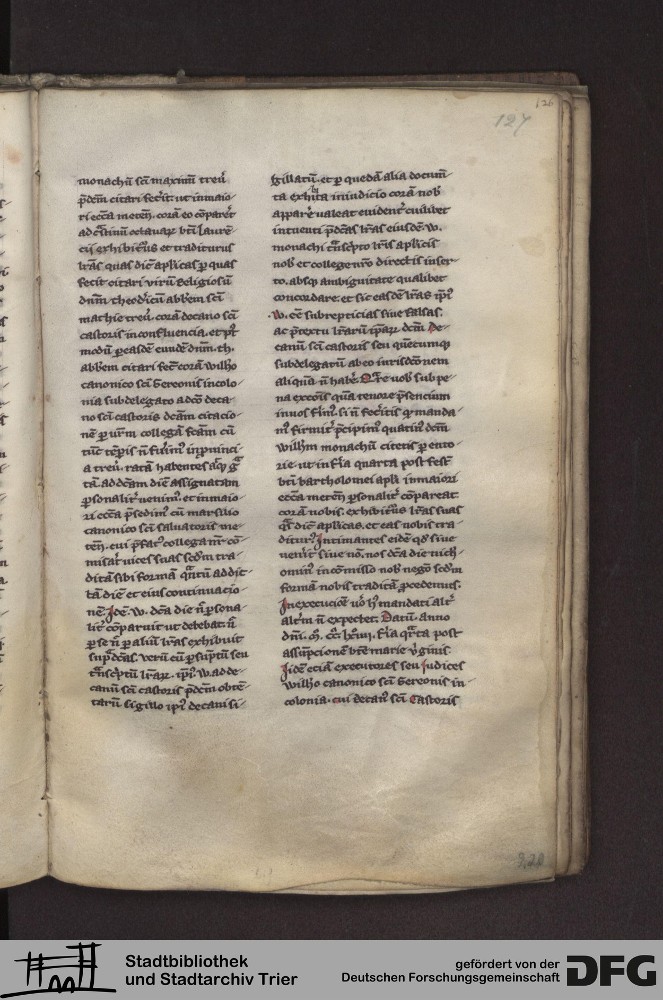 126
127
monachū scī maximī treu᷑
p̄dcm̄ citari fec̄it ut in maio-
ri ecc̄a meteñ. corā eo cōpareret
ad crastinū octauaꝝ btī laurē-
cii exhibiturus et traditurus
lrās quas dic̄ aplicas ꝑ quas
fecit citari virū religiosū
dn̄m theodicū abbem scī
mathie treu᷑. corā decano scī
castoris in confluencia. et p̄t
modū ꝑ easdē eundē dn̄m. th.
abbem citari fec̄ corā wilh̄o
canonico scī Gereonis in colo-
nia subdelegato a dc̄o deca-
no scī castoris dc̄am citacio-
nē ꝑ ur̄m collegā fc̄am cū
tūc tēpis n̄ fuim᷒ in ꝓuinci-
a treu᷑. ratā habentes atqꝫ gͣ-
tā. ad dc̄am diē assignatam
ꝑsonalit᷑ uenim᷒. et in maio-
ri ecc̄a p̄sedim᷒ cū marsilio
canonico scī saluatoris me-
teñ. cui p̄fat᷒ collega nr̄ cō-
misit uices suas scdm̄ tra-
ditā sibi formā qͣntū ad dic-
tā diē et eius continuacio-
nē. Idē. w. dc̄a die n̄ ꝑsona-
lit᷑ cōparuit ut debebat. n̄
ꝑ se n̄ ꝑ aliū lrās exhibuit
sup̄dc̄as. uerū cū ꝑ suꝑtū seu
tͣnsc̄ptū lrāꝝ. ip̄i᷒ w. a de-
canū scī castoris p̄dcm̄ obtē-
tarū sigillo ip̄i᷒ decani si-
gillatū. et ꝑ quedā alia docum̄-
ta exhibita in iudicio corā nob᷒
appare᷑ ualeat euident᷑ cuilibet
intuenti p̄dc̄as lrās eiusdē. w.
monachi tͣnsc̄pto lrīs aplicis
nob᷒ et college nr̄o directis inser-
to. absqꝫ ambiguitate qualibet
concordare. et sic easdē lrās ip̄i᷒
. w. eē subrepticias siue falsas.
ac p̄textu lrārū ip̄aꝝ dcm̄ De-
canū scī castoris seu quēcumqꝫ
subdelegatū ab eo iurisdcōnem
aliquā n̄ habe᷑. Qͣre uob᷒ sub pe-
na excōis quā tenore p̄sencium
in uos ferim᷒ si n̄ fec̄itis qͦ manda-
m᷒ firmit᷑ p̄cipim᷒ quatin᷒ dcm̄
wilh̄m monachū citetis ꝑ ento-
rie. ut in fr̄ia quarta post fest̄
btī bartholomei apli in maiori
ecc̄a meteñ ꝑsonalit᷑ cōpareat
corā nobis. exhibitur᷒ lrās suas
qͣs dic̄ aplicas. et eas nobis tra-
ditur᷒. Intimantes eidē qd̄ siue
uen̄it siue nō. nos dc̄a die nich-
omin᷒ in cōmisso nob᷒ negō scdm̄
formā nobis traditā ꝓcedemus.
In execucioē uͦ hꝰ mandati alt᷑
altm̄ n̄ expectet. Datū. anno
dn̄i. m̊. cc̊. lxiii. fr̄ia qͣrta post
assūpcionē btē marie ỹginis.
Iidē eciā executores seu Iudices
wilh̄o canonico scī Gereonis in-
colonia. cui decan᷒ scī Castoris
Stadtbibliothek
und Stadtarchiv Trier
gefördert von der
Deutschen Forschungsgemeinschaft
DFG